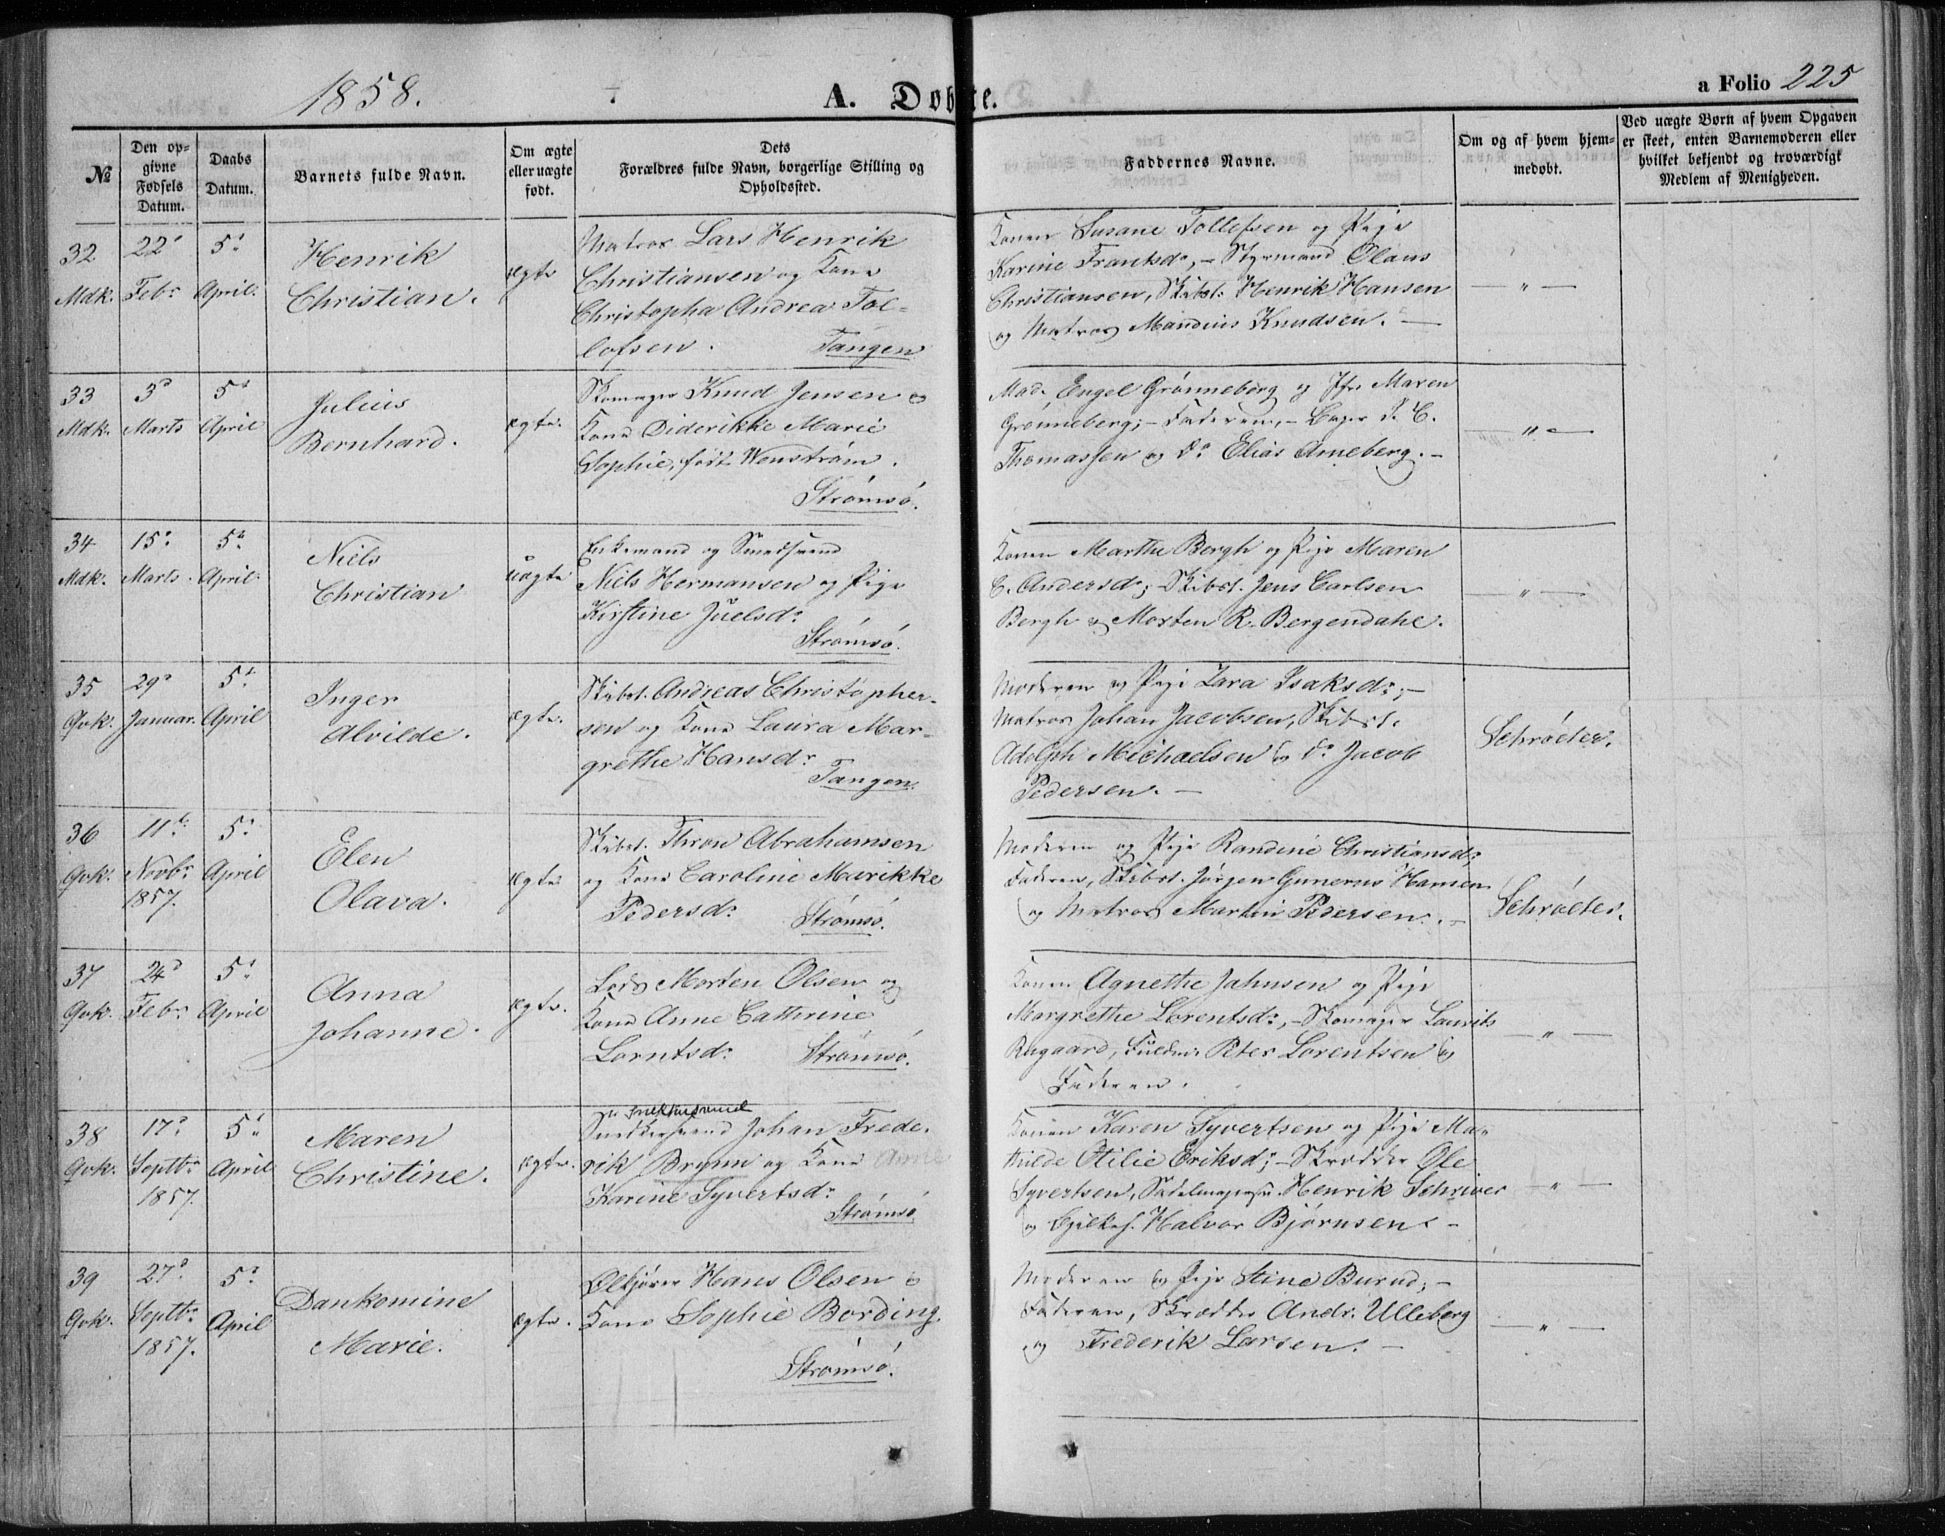 1858.
A. Døbte.
a Folio 225
№
Den opgivne Fødsels Datum.
Daabs Datum.
Barnets fulde Navn.
Om ægte eller uægte født.
Dets Forældres fulde Navn, borgerlige Stilling og Opholdssted.
Faddernes Navne.
Om og af hvem hjemmedøbt.
Ved uægte Børn af hvem Opgaven er skeet, enten Barnemoderen eller hvilket bekjendt og troværdigt Medlem af Menigheden.
32 Mdk.
22 Febr
5 April.
Henrik
Christian.
ægte
Matros Lars Henrik
Christiansen og Kone
Christopha Andrea Tol-
lofsen. Tangen
Konen Susane Tollefsen og Pige
Karine Franksdr, - Styrmand Olaus
Christiansen, Skibst. Henrik Hansen
og Matros Mandius Knudsen. -
— " —
33 Mdk.
3d Marts
5t April
Julius
Bernhard.
ægte.
Skomager Knud Jensen og
Kone Diderikke Marie
Sophie, født Wenstrøm.
Strømsø.
Mad. Engel Grønneberg og Jfr Maren
Grønneberg; - Faderen, - Bager P. C.
Thomassen og do Elias Arneberg. -
— " —
34 Mdk.
15 Marts.
5t April.
Niels
Christian
uægte
Enkemand og Smedsvend
Niels Hermansen og Pige
Kirstine Juelsdr
Strømsø.
Konen Marthe Bergh og Pige Maren
C. Andersdr; - Skibst. Jens Carlsen
Bergh og Morten R. Bergendahl.
— " —
35 Qvk.
29 Januar.
5t April
Inger
Alvilde.
ægte.
Skibst. Andreas Christopher-
sen og Kone Laura Mar-
grethe Hansdr
Tangen.
Moderen og Pige Lara Isaksdr; -
Matros Johan Jacobsen, Skibst.
Adolph Michaelsen og do Jacob
Pedersen. -
Schrøeter.
36 Qvk.
11t Novbr 1857.
5 April
Elen
Olava.
ægte
Skibst. Thron Abrahamsen
og Kone Caroline Marikke
Pedersdr Strømsø.
Moderen og Pige Randine Christiansdr;
Faderen, Skibst. Jørgen Gunerus Hansen
og Matros Martin Pedersen. -
Schrøeter.
37 Qvk.
24d Febr
5t April
Anna
Johanne.
ægte.
Lods Morten Olsen og
Kone Anne Cathrine
Lorntsdr Strømsø.
Konen Agnethe Jahnsen og Pige
Margrethe Lorentsdr, - Skomager Laurits
Rugaard, Peter Lorentsen og
Faderen.
— " —
38 Qvk.
17 Septbr 1857.
5t April
Maren
Christine.
ægte.
Snedkersvend
Snedkersvend Johan Frede-
rik Brynn og Kone Anne
Karine Syvertsdr
Strømsø
Konen Karen Syvertsen og Pige Ma-
thilde Otilie Eriksdr; - Skrædder Ole
Syvertsen, Sadelmagersv. Henrik Schriver
og Halvor Bjørnsen. -
— " —
39 Qvk.
27d Septbr 1857.
5t April
Dankomine
Marie.
ægte.
Ølkjører Hans Olsen og
Kone Sophie Bording.
Strømsø.
Moderen og Pige Stine Burud; -
Faderen, Skrædder Andr. Ulleberg
og Frederik Larsen. -
— " —